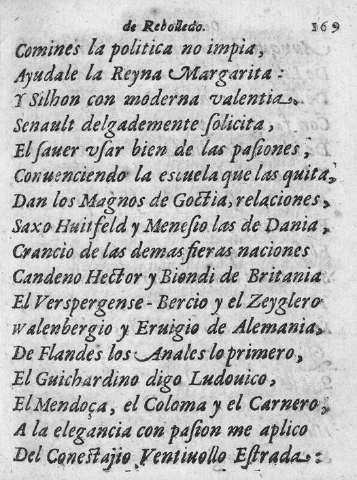 de Rebolledo. 169
Comines la politica no impia,
Ayudale la Reyna Margarita:
Y Silhon con moderna valentia.
Senault delgademente ſolicita,
El ſauer vſar bien de las paſiones,
Conuenciendo la eſcuela que las quita,
Dan los Magnos de Goctia, relaciones,
Saxo Huitfeld y Meneſio las de Dania,
Crancio de las demas fieras naciones
Candeno Hector y Biondi de Britania
El Verspergense-Bercio y el Zeyglero
walenbergio y Eruigio de Alemania,
De Flandes los Anales lo primero,
El Guichardino digo Ludouico,
El Mendoça, el Coloma y el Carnero,
A la elegancia con paſion me aplico
Del Coneſtajio Ventiuollo Eſtrada: